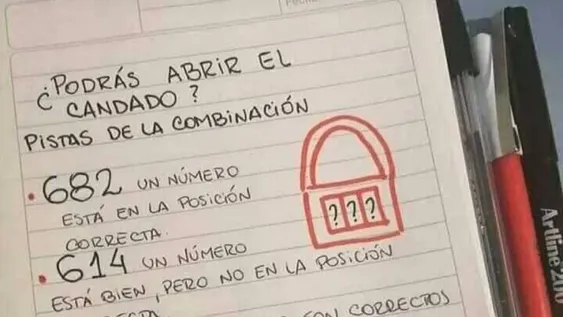 ¿PODRÁS ABRIR EL
CANDADO?
PISTAS DE LA COMBINACIÓN
• 682 UN NÚMERO
ESTÁ EN LA POSICIÓN
CORRECTA.
???
• 614 UN NÚMERO
ESTÁ BIEN, PERO NO EN LA POSICIÓN
CORRECTOS
Artline 200